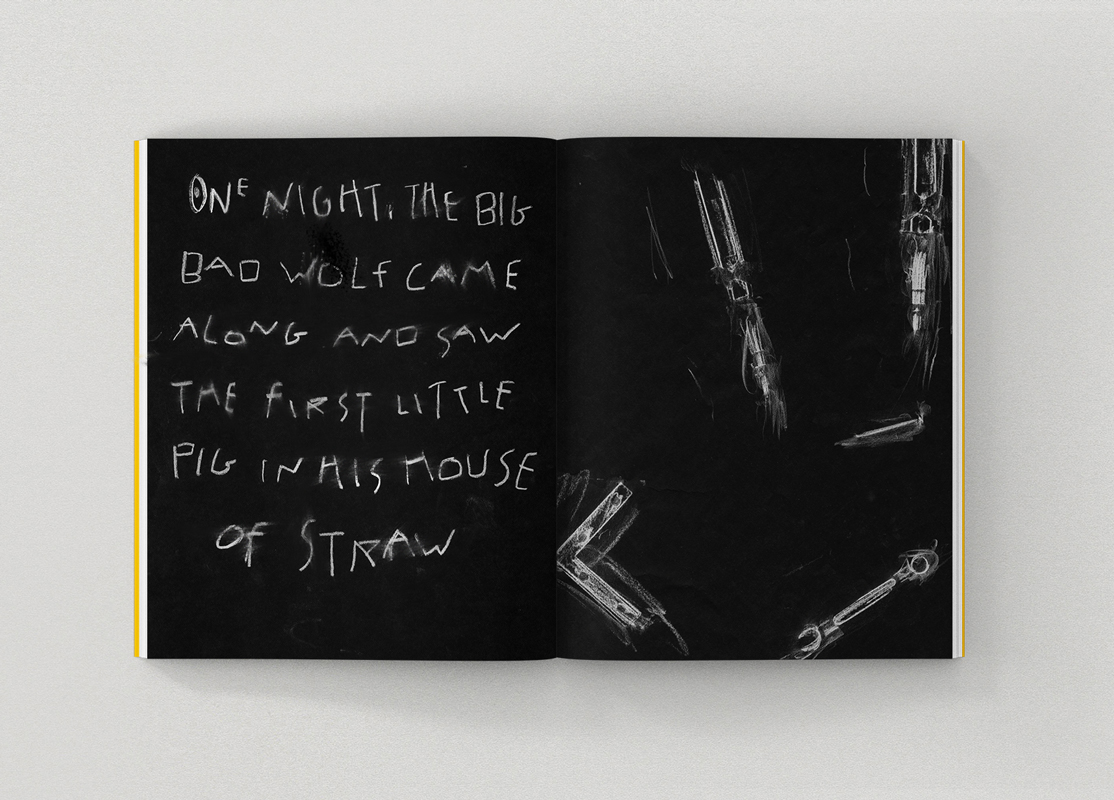 ONE NIGHT, THE BIG
BAD WOLF CAME
ALONG AND SAW
THE FIRST LITTLE
PIG IN HIS HOUSE
OF STRAW